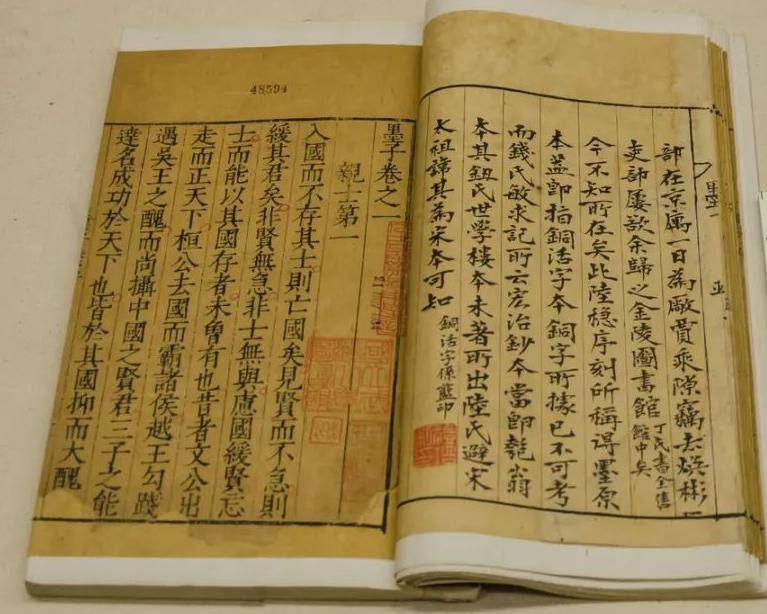 部在京寓一日為敵賈乘隙竊去煥彬
吏部屢欲余歸之金陵圖書館丁氏書全售館中矣
今不知所在矣此陸穩序刻所稱得墨原
本蓋即指銅活字本銅字所據已不可考
而錢氏敏求記所云宏治鈔本當即匏翁
本其鈕氏世學樓本未著所出陸氏避宋
太祖諱其為宋本可知銅活字係藍印
48594
墨子卷之一
親士第一
入國而不存其士則亡國矣見賢而不急則
緩其君矣非賢無急非士無與慮國緩賢忘
士而能以其國存者未曾有也昔者文公出
走而正天下桓公去國而霸諸侯越王勾踐
遇吳王之醜而尚攝中國之賢君三子之能
達名成功於天下也皆於其國抑而大醜